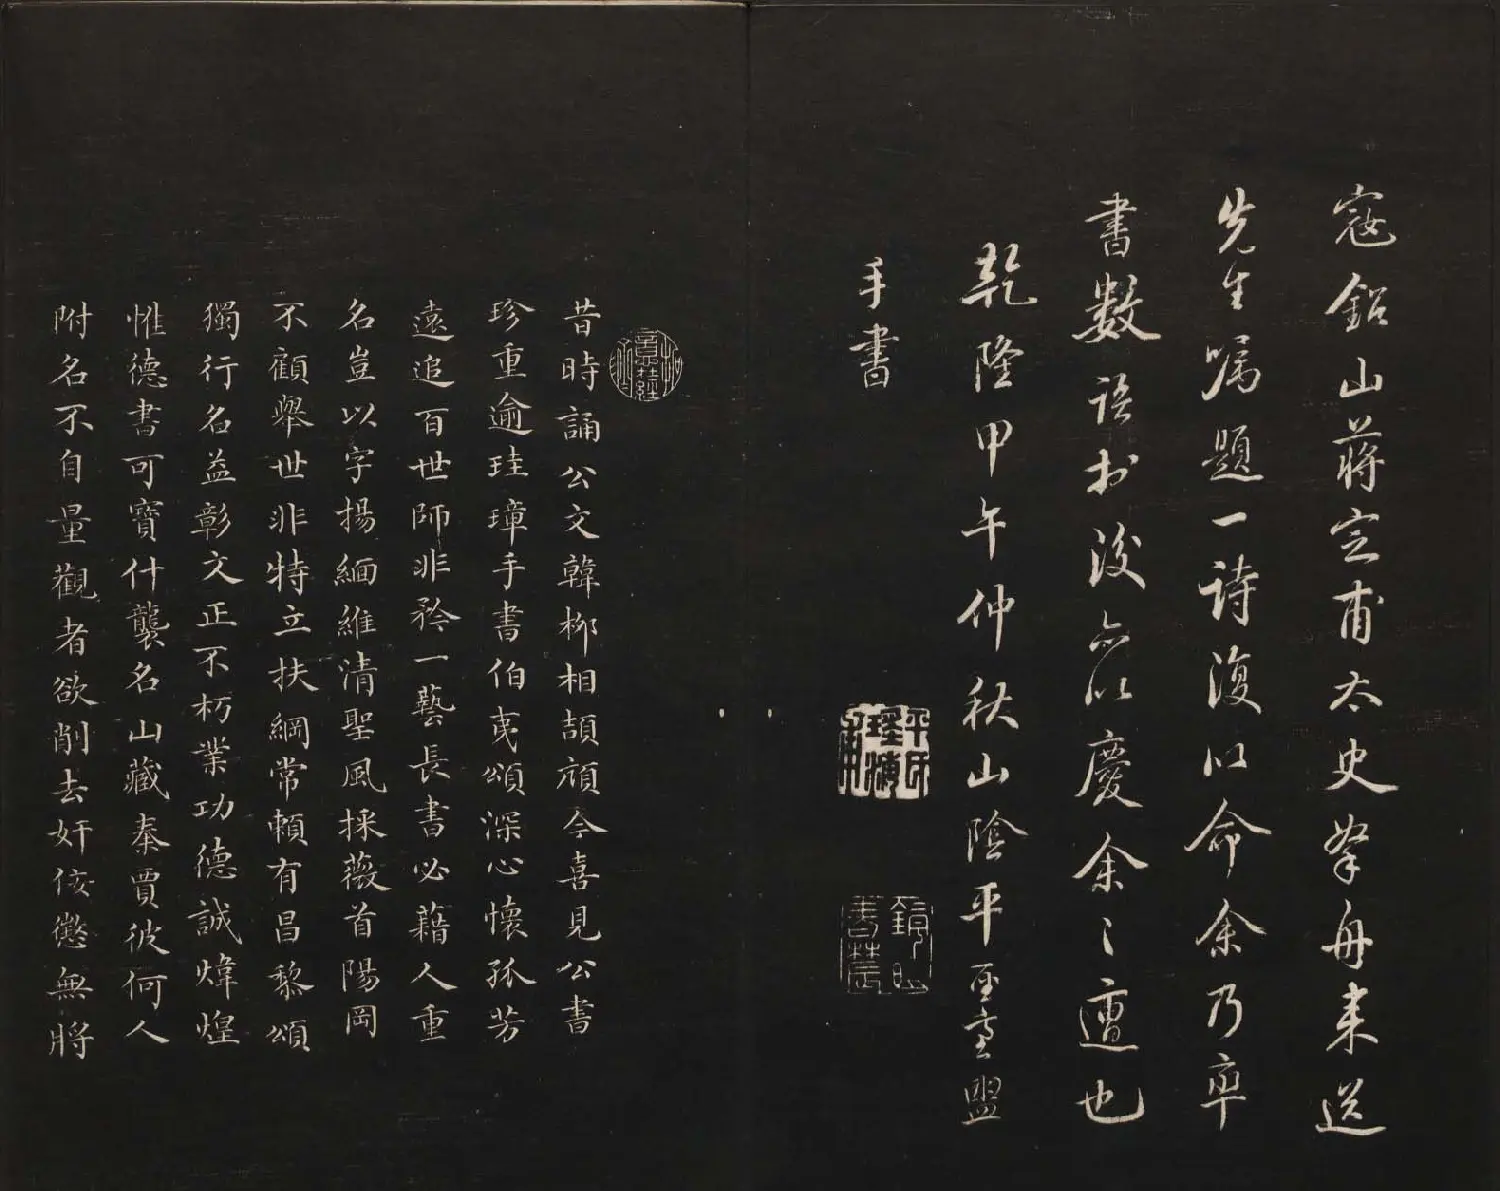 寇鉛山蔣定甫太史拏舟来送
先生嘱題一詩復以命余乃率
書數語於後亦以慶余之遭也
乾隆甲午仲秋山陰平聖臺盥
手書
昔時誦公文韓柳相頡頏今喜見公書
珍重逾珪璋手書伯夷頌深心懷孤芳
遠追百世師非矜一藝長書必藉人重
名豈以字揚緬維清聖風採薇首陽岡
不顧舉世非特立扶綱常賴有昌黎頌
獨行名益彰文正不朽業功德誠煒煌
惟德書可寶什襲名山藏秦賈彼何人
附名不自量觀者欲削去奸佞懲無將